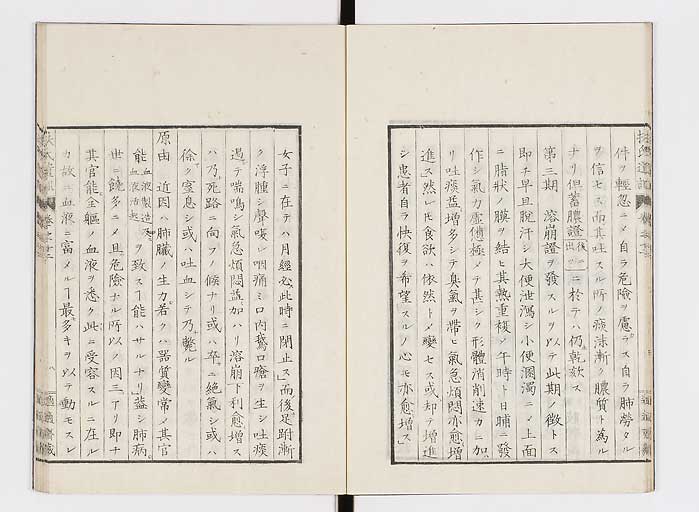 件ヲ輕忽ニメ自ラ危險ヲ慮ラス自ラ肺勞タル
ヲ信セス而其吐スル所ノ痰沫漸ク膿質ト為ル
ナリ但蓄膿證後ニ出ニ於テハ仍乾欬ス
第三期 溶崩證ヲ發スルヲ以テ此期ノ徵トス
即チ早旦脫汗シ大便泄瀉シ小便溷濁ニメ上面
ニ脂狀ノ膜ヲ結ヒ其熱重複ノ午時ト日晡ニ發
作シ氣力虛憊極メテ甚シク形體消削速カニ加
リ吐痰益增多シテ臭氣ヲ帶ヒ氣急煩悶亦愈增
進ス然レ𪜈食欲ハ依然トメ變セス或却テ增進
シ患者自ラ快復ヲ希望スルノ心モ亦愈增ス
女子ニ在テハ月經必此時ニ閉止ス而後足跗漸
ク浮腫シ聲嗄レ咽痛ミ口内鵞口瘡ヲ生シ吐痰
過テ喘鳴シ氣急煩悶益加ハリ溶崩下利愈增ス
ハ乃死路ニ向フノ候ナリ或ハ卒ニ絶氣シ或ハ
徐ク窒息シ或ハ吐血シテ乃斃ル
原由 近因ハ肺臟ノ生力若クハ器質變常メ其官
能血液製造血液活起ヲ致スヿ能ハサルナリ蓋シ肺病
世ニ饒多ニメ且危險ナル所以ノ因三アリ即チ
其官能全軀ノ血液ヲ悉ク此ニ受容スルニ在ル
カ故ニ血液ニ富メルヿ最多キヲ以テ動モスレ